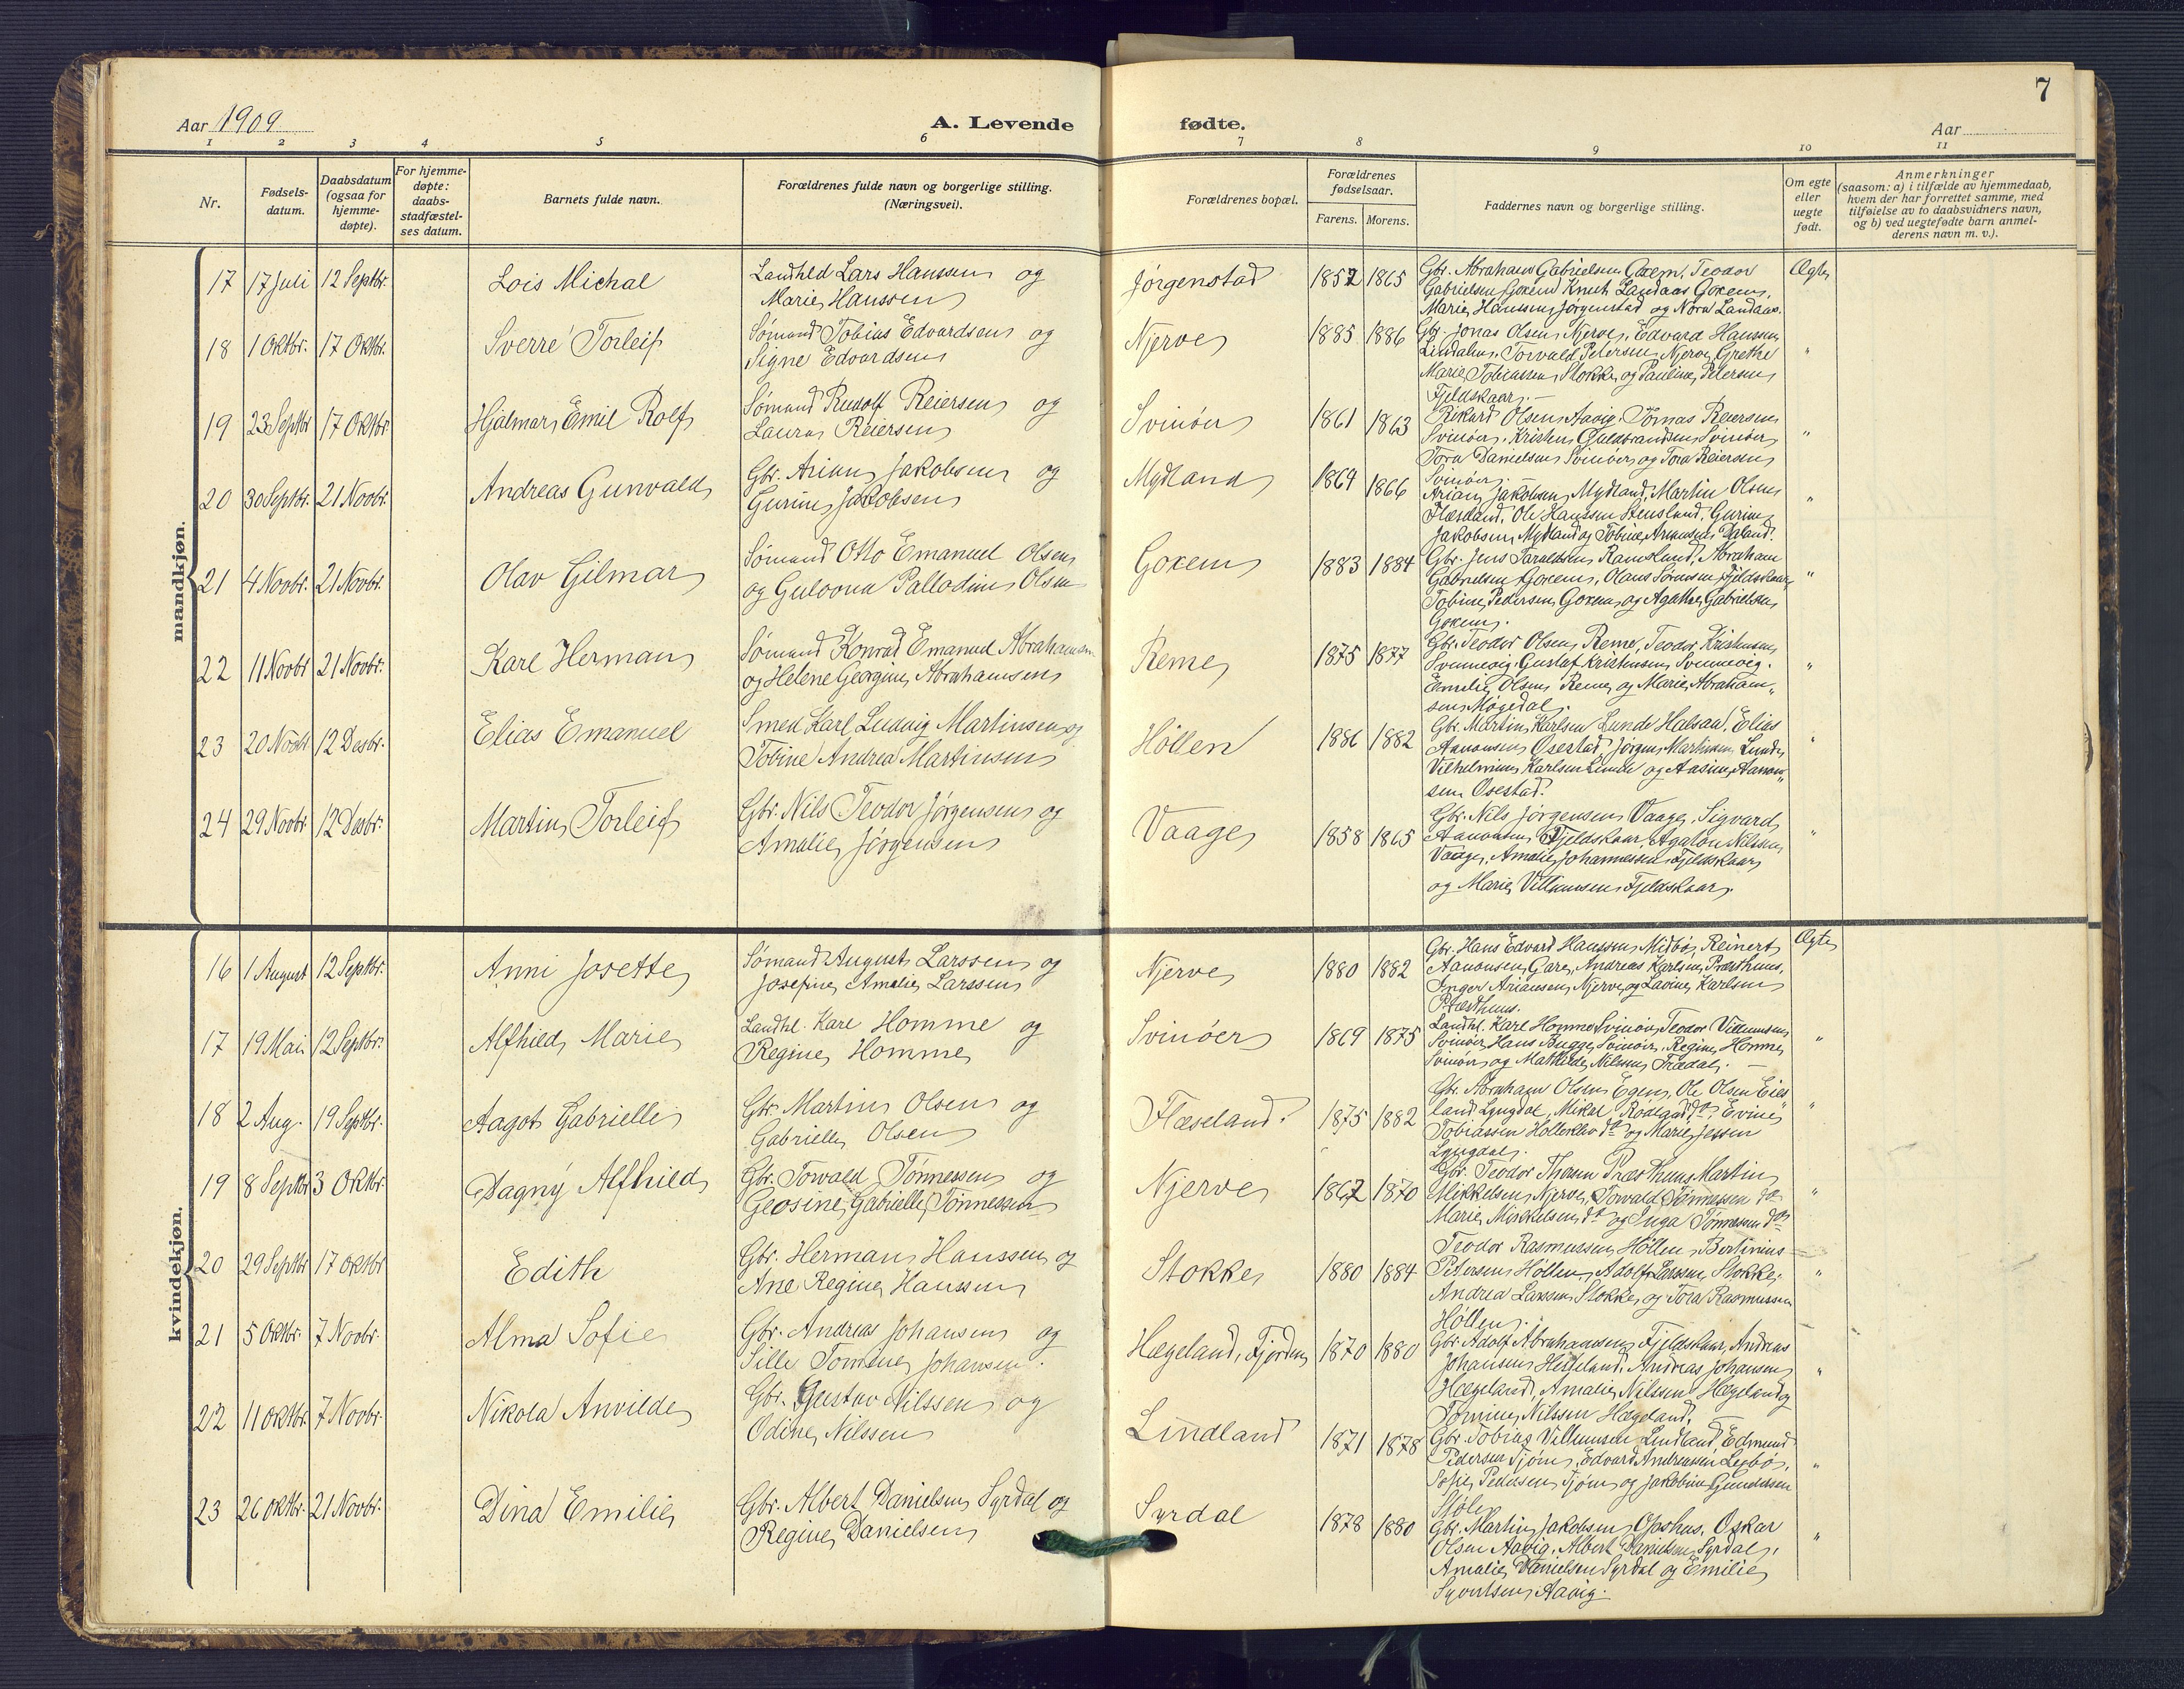 Aar 1909
A. Levende fødte.
Aar
7
1 2 3 4 5 6 7 8 9 10 11
Nr.
Fødsels-
datum.
Daabsdatum
(ogsaa for
hjemme-
døpte).
For hjemme-
døpte:
daabs-
stadfæstel-
ses datum.
Barnets fulde navn.
Forældrenes fulde navn og borgerlige stilling.
(Næringsvei).
Forældrenes bopæl.
Forældrenes
fødselsaar.
Farens. Morens.
Faddernes navn og borgerlige stilling.
Om egte
eller
uegte
født.
Anmerkninger
(saasom: a) i tilfælde av hjemmedaab,
hvem der har forrettet samme, med
tilføielse av to daabsvidners navn,
og b) ved uegtefødte barn anmel-
derens navn m. v.).
mandkjøn.
17 17 Juli 12 Septbr. Lois Michal
Landhld Lars Hanssen og
Marie Hanssen
Jørgenstad 1857 1865
Gbr. Abraham Gabrielsen Goxem, Teodor
Gabrielsen Goxem Knut Landaas Goxem,
Marie Hanssen Jørgenstad og Nora Landaas.
Ægte
18 1 Oktbr. 17 Oktbr. Sverre Torleif
Sømand Tobias Edvardsen og
Signe Edvardsen
Njerve 1885 1886
Gbr. Jonas Olsen Njerve, Edvard Hanssen
Lindahn, Torvald Petersen Njerve, Grethe
Marie Tobiassen Stokke og Pauline Petersen
Fjeldskaar. —
"
19 23 Septbr 17 Oktbr. Hjalmar Emil Rolf
Sømand Rudolf Reiersen og
Laura Reiersen
Svinøer 1861 1863
Rikard Olsen Aavig. Tomas Reiersen
Svinøer. Kristen Guldbrandsen Svinøer,
Tora Danielsen Svinøer og Tora Reiersen
Svinøer.
"
20 30 Septbr. 21 Novbr. Andreas Gunvald
Gbr. Arian Jakobsen og
Gurine Jakobsen
Mydland 1864 1866
Arian Jakobsen Mydland, Martin Olsen
Flæseland, Ole Hanssen Stensland, Gurine
Jakobsen Mydland og Tobine Ariansen Daland.
"
21 4 Novbr. 21 Novbr. Olav Gilmar
Sømand Otto Emanuel Olsen
og Gulovna Palladine Olsen
Goxem 1883 1884
Gbr. Jens Taraldsen Ramsland, Abraham
Gabrielsen Goxem, Olaus Sørensen Fjeldskaar,
Tobine Pedersen Goxem og Agathe Gabrielsen
Goxem.
"
22 11 Novbr 21 Novbr. Karl Herman
Sømand Konrad Emanuel Abrahamsen
og Helene Georgine Abrahamsen
Reme 1875 1877
Gbr. Teodor Olsen Reme, Teodor Kristensen
Svennevig. Gustaf Kristensen Svennevig.
Emelie Olsen Reme og Marie Abraham-
sen Møgedal.
"
23 20 Novbr 12 Desbr. Elias Emanuel
Smed Karl Ludvig Martinsen og
Tobine Andrea Martinsen
Höllen 1886 1882
Gbr. Martin Karlsen Lunde Halsaa, Elias
Aanonsen Osestad, Jørgen Martinsen Lunde,
Vilhelmine Karlsen Lunde og Aasine Aanon-
sen Osestad.
"
24 29 Novbr. 12 Desbr. Martin Torleif
Gbr. Nils Teodor Jørgensen og
Amalie Jørgensen
Vaage 1858 1865
Gbr. Nils Jørgensen Vaage, Sigvard
Aanonsen Fjeldskaar, Agaton Nilssen
Vaage, Amalie Johannessen Fjeldskaar
og Marie Villumsen Fjeldskaar.
"
kvindekjøn.
16 1 August 12 Septbr. Anni Josette
Sømand August Larssen og
Josefine Amalie Larssen
Njerve 1880 1882
Gbr. Hans Edvard Hanssen Midbø, Reinert
Aanonsen Gare, Andreas Karlsen Præsthuus,
Inger Ariansen Njerve og Lavine Karlsen
Præsthuus.
Ægte
17 19 Mai 12 Septbr. Alfhild Marie
Landhl. Karl Homme og
Regine Homme
Svinöer 1869 1875
Landhl. Karl Homme Svinöer, Teodor Villumsen
Svinöer Hans Bugge, Svinöer, Regine Homme,
Svinöer og Mathilde Nilssen Trædal. —
"
18 2 Aug. 19 Septbr. Aagot Gabrielle
Gbr. Martin Olsen og
Gabrielle Olsen
Flæseland. 1875 1882
Gbr. Abraham Olsen Egen, Ole Olsen Eik-
land Lyngdal, Mikal Röaland do, Evine
Tobiassen Hollekleiv do og Marie Jessen
Lyngdal.
"
19 8 Septbr 3 Oktbr. Dagny Alfhild
Gbr. Torvald Tönnessen og
Geosine Gabrielle Tönnessen
Njerve 1867 1870
Gbr. Teodor Thoen Præsthuus, Martin
Mikkelsen Njerve, Torvald Tönnessen do
Marie Mikkelsen do og Inga Tönnessen do
"
20 29 Septbr 17 Oktbr Edith
Gbr. Herman Hanssen og
Ane Regine Hanssen
Stokke 1880 1884
Teodor Rasmussen Höllen, Bertinius
Petersen Höllen, Adolf Larssen Stokke,
Andrea Larssen Stokke og Tora Rasmussen
Höllen.
"
21 5 Oktbr. 7 Novbr. Alma Sofie
Gbr. Andreas Johansen og
Sille Tomine Johansen.
Hægeland, Fjorden 1870 1880
Gbr. Adolf Abrahamsen Fjeldskaar, Andreas
Johansen Hægeland, Andreas Johansen
Hægeland, Amalie Nilssen Hægeland og
Tomine Nilssen Hægeland.
"
22 11 Oktbr. 7 Novbr. Nikola Anvilde
Gbr. Gustav Nilssen og
Odine Nilssen
Lindland 1871 1878
Gbr. Tobias Villumsen Lindland, Edmund
Pedersen Tjøm, Edvard Andreassen Legbø,
Sofie Pedersen Tjøm og Jakobine Gundersen
Støle
"
23 26 Oktbr. 21 Novbr. Dina Emilie
Gbr. Albert Danielsen Syrdal og
Regine Danielsen
Syrdal 1878 1880
Gbr. Martin Jakobsen Opshus, Oskar
Olsen Aavig, Albert Danielsen Syrdal,
Amalie Danielsen Syrdal og Emilie
Syvertsen Aavig.
"